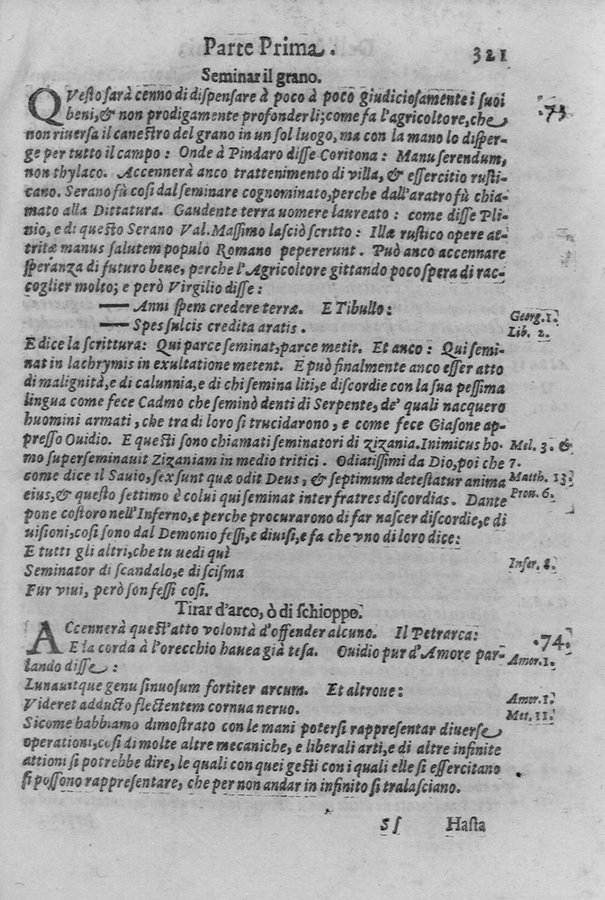 Parte Prima. 321
Seminar il grano.
QVesto sarà cenno di dispensare à poco à poco giudiciosamente i suoi
beni,& non prodigamente profonderli; come fa l'agricoltore, che ·73
non riuersa il canestro del grano in un sol luogo, ma con la mano lo disper-
ge per tutto il campo: Onde à Pindaro disse Coritona: Manu serendum,
non thylaco. Accennerà anco trattenimento di villa, & essercitio rusti-
cano. Serano fù cosi dal seminare cognominato, perche dall'aratro fù chia-
mato alla Dittatura. Gaudente terra uomere laureato: come disse Pli-
nio, e di questo Serano Val. Massimo lasciò scritto: Illæ rustico opere at-
tritæ manus salutem populo Romano pepererunt. Può anco accennare
speranza di futuro bene, perche l'Agricoltore gittando poco spera di rac-
coglier molto; e però Virgilio disse:
— Anni spem credere terræ. E Tibullo: Georg. 1.
— Spes sulcis credita aratis. Lib. 2.
E dice la scrittura: Qui parce seminat, parce metit. Et anco: Qui semi-
nat in lachrymis in exultatione metent. E può finalmente anco esser atto
di malignità, e di calunnia, e di chi semina liti, e discordie con la sua pessima
lingua come fece Cadmo che seminò denti di Serpente, de' quali nacquero
huomini armati, che tra di loro si trucidarono, e come fece Giasone ap-
presso Ouidio. E questi sono chiamati seminatori di zizania. Inimicus ho- Mel. 3. &
mo superseminauit Zizaniam in medio tritici. Odiatissimi da Dio, poi che 7.
come dice il Sauio, sex sunt quæ odit Deus, & septimum detestatur anima Matth. 13.
eius, & questo settimo è colui qui seminat inter fratres discordias. Dante Prou. 6.
pone costoro nell'Inferno, e perche procurarono di far nascer discordie, e di
uisioni, cosi sono dal Demonio fessi, e diuisi, e fa che vno di loro dice:
E tutti gli altri, che tu uedi quì
Seminator di scandalo, e di scisma Infer. 8.
Fur viui, però son fessi cosi.
Tirar d'arco, ò di schioppo.
ACcennerà quest'atto volontà d'offender alcuno. Il Petrarca: ·74.
E la corda à l'orecchio hauea già tesa. Ouidio pur d'Amore par-
lando disse: Amor. 1.
Lunauitque genu sinuosum fortiter arcum. Et altroue:
Videret adducto flectentem cornua neruo. Amor. 1.
Sicome habbiamo dimostrato con le mani potersi rappresentar diuerse Met. 11.
operationi, cosi di molte altre mecaniche, e liberali arti, e di altre infinite
attioni si potrebbe dire, le quali con quei gesti con i quali elle si essercitano
si possono rappresentare, che per non andar in infinito si tralasciano.
Sſ Hasta